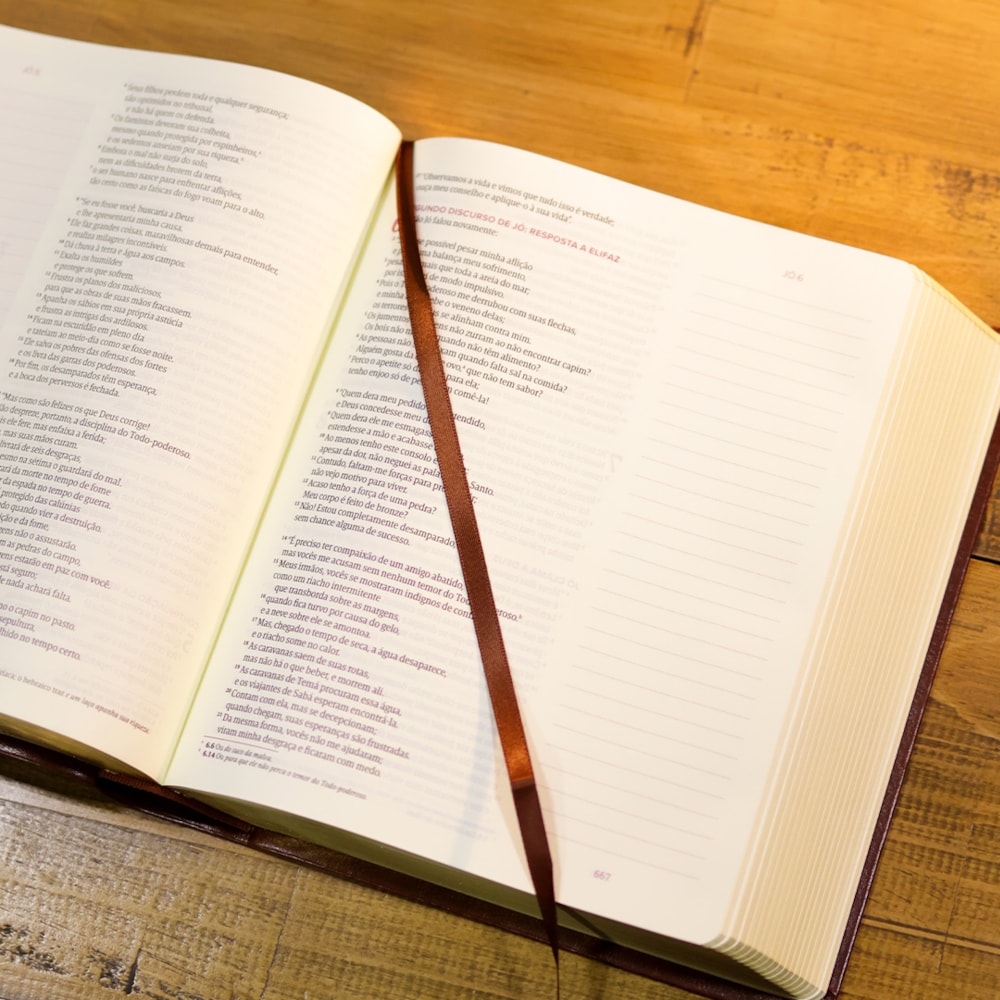 JÓ 5
⁴ Seus filhos perdem toda e qualquer segurança;
são oprimidos no tribunal,
e não há quem os defenda.
⁵ Os famintos devoram sua colheita,
mesmo quando protegida por espinheiros,ᵃ
e os sedentos anseiam por sua riqueza.ᵇ
⁶ Embora o mal não surja do solo,
nem as dificuldades brotem da terra,
⁷ o ser humano nasce para enfrentar aflições,
tão certo como as faíscas do fogo voam para o alto.
⁸ "Se eu fosse você, buscaria a Deus
e lhe apresentaria minha causa.
⁹ Ele faz grandes coisas, maravilhosas demais para entender,
e realiza milagres incontáveis.
¹⁰ Dá chuva à terra e água aos campos.
¹¹ Exalta os humildes
e protege os que sofrem.
¹² Frustra os planos dos maliciosos,
para que as obras de suas mãos fracassem.
¹³ Apanha os sábios em sua própria astúcia
e frustra as intrigas dos ardilosos.
¹⁴ Ficam na escuridão em pleno dia
e tateiam ao meio-dia como se fosse noite.
¹⁵ Ele salva os pobres das ofensas dos fortes
e os livra das garras dos poderosos.
¹⁶ Por fim, os desamparados têm esperança,
e a boca dos perversos é fechada.
"Mas como são felizes os que Deus corrige!
despreze, portanto, a disciplina do Todo-poderoso.
ele fere, mas enfaixa a ferida;
mas suas mãos curam.
livrará de seis desgraças,
mesmo na sétima o guardará do mal.
da morte no tempo de fome
da espada no tempo de guerra.
protegido das calúnias
quando vier a destruição.
e da fome,
não o assustarão.
as pedras do campo,
estarão em paz com você.
está seguro;
nada achará falta.
o capim no pasto.
sepultura,
no tempo certo.
o hebraico traz e um laço apanha sua riqueza.
"Observamos a vida e vimos que tudo isso é verdade;
ouça meu conselho e aplique-o à sua vida".
SEGUNDO DISCURSO DE JÓ: RESPOSTA A ELIFAZ
Jó falou novamente:
possível pesar minha aflição
balança meu sofrimento,
mais que toda a areia do mar;
de modo impulsivo.
Pois o me derrubou com suas flechas,
e minha o veneno delas;
os terrores se alinham contra mim.
⁵ Os jumentos não zurram ao não encontrar capim?
Os bois não quando não têm alimento?
⁶ As pessoas não quando falta sal na comida?
Alguém gosta da ovo,ᵃ que não tem sabor?
⁷ Perco o apetite só para ela;
tenho enjoo só de comê-la!
⁸ "Quem dera meu pedido atendido,
e Deus concedesse meu
⁹ Quem dera ele me esmagasse,
estendesse a mão e acabasse
¹⁰ Ao menos tenho este consolo
apesar da dor, não neguei as Santo.
¹¹ Contudo, faltam-me forças para
não vejo motivo para viver.
¹² Acaso tenho a força de uma pedra?
Meu corpo é feito de bronze?
¹³ Não! Estou completamente desamparado,
sem chance alguma de sucesso.
¹⁴ "É preciso ter compaixão de um amigo abatido,
mas vocês me acusam sem nenhum temor do Todo-poderoso.ᵇ
¹⁵ Meus irmãos, vocês se mostraram indignos de
como um riacho intermitente
que transborda sobre as margens,
¹⁶ quando fica turvo por causa do gelo,
e a neve sobre ele se amontoa.
¹⁷ Mas, chegado o tempo de seca, a água desaparece,
e o riacho some no calor.
¹⁸ As caravanas saem de suas rotas,
mas não há o que beber, e morrem ali.
¹⁹ As caravanas de Temá procuram essa água,
e os viajantes de Sabá esperam encontrá-la.
²⁰ Contam com ela, mas se decepcionam;
quando chegam, suas esperanças são frustradas.
²¹ Da mesma forma, vocês não me ajudaram;
viram minha desgraça e ficaram com medo.
ᵃ 6.6 Ou do suco da malva.
ᵇ 6.14 Ou para que ele não perca o temor do Todo-poderoso.
JÓ 6
667